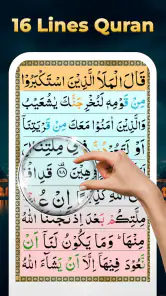 16 Lines Quran
قَالَ الْمَلَاُ الَّذِيْنَ اسْتَكْبَرُوْا
مِنْ قَوْمِهٖ لَنُخْرِجَنَّكَ يٰشُعَيْبُ
وَالَّذِيْنَ اٰمَنُوْا مَعَكَ مِنْ قَرْيَتِنَاۤ
فِيْ مِلَّتِنَا
اِنْ عُ
مِلَّتِكُمْ اللّٰهُ
مِنْهَا ؕ وَمَا يَكُوْنُ لَنَاۤ اَنْ
نَّعُوْدَ فِيْهَاۤ اِلَّاۤ اَنْ يَّشَآءَ اللّٰهُ